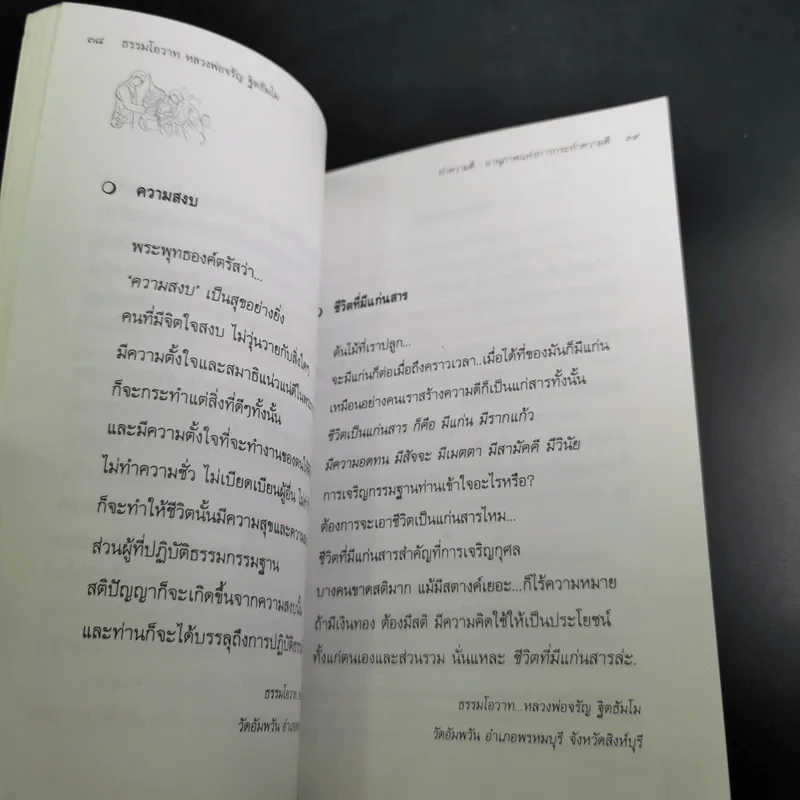 ๓๘ ธรรมโอวาท หลวงพ่อจรัญ ฐิตธัมโม
ความสงบ
พระพุทธองค์ตรัสว่า...
'ความสงบ' เป็นสุขอย่างยิ่ง
คนที่มีจิตใจสงบ ไม่วุ่นวายกับสิ่งใดๆ
มีความตั้งใจและสมาธิแน่วแน่ดี
ก็จะกระทำแต่สิ่งที่ดีๆทั้งนั้น
และมีความตั้งใจที่จะทำงานของตน
ไม่ทำความชั่ว ไม่เบียดเบียนผู้อื่น
ก็จะทำให้ชีวิตนั้นมีความสุขและความ
ส่วนผู้ที่ปฏิบัติธรรมกรรมฐาน
สติปัญญาก็จะเกิดขึ้นจากความสงบนั้น
และท่านก็จะได้บรรลุถึงการปฏิบัติธรรม
ธรรมโอวาท
วัดอัมพวัน อำเภอ
ทำความดี : อานุภาพแห่งการกระทำความดี ๓๙
ชีวิตที่มีแก่นสาร
ต้นไม้ที่เราปลูก...
จะมีแก่นก็ต่อเมื่อถึงคราวเวลา...เมื่อได้ที่ของมันก็มีแก่น
เหมือนอย่างคนเราสร้างความดีก็เป็นแก่สารทั้งนั้น
ชีวิตเป็นแก่นสาร ก็คือ มีแก่น มีรากแก้ว
มีความอดทน มีสัจจะ มีเมตตา มีสามัคคี มีวินัย
การเจริญกรรมฐานท่านเข้าใจอะไรหรือ?
ต้องการจะเอาชีวิตเป็นแก่นสารไหม...
ชีวิตที่มีแก่นสารสำคัญที่การเจริญกุศล
บางคนขาดสติมาก แม้มีสตางค์เยอะ...ก็ไร้ความหมาย
ถ้ามีเงินทอง ต้องมีสติ มีความคิดใช้ให้เป็นประโยชน์
ทั้งแก่ตนเองและส่วนรวม นั่นแหละ ชีวิตที่มีแก่นสารล่ะ.
ธรรมโอวาท...หลวงพ่อจรัญ ฐิตธัมโม
วัดอัมพวัน อำเภอพรหมบุรี จังหวัดสิงห์บุรี